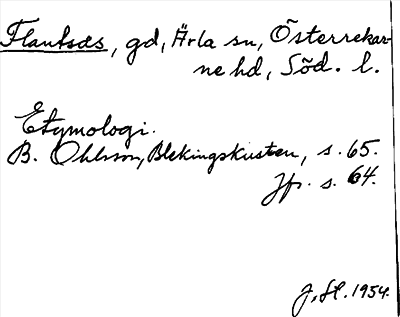 Flantsås, gd, Ärla sn, Österrekar-
ne hd, Söd. l.
Etymologi.
B. Ohlsson, Blekingskusten, s. 65.
Jfr. s. 64.
J. St. 1954.